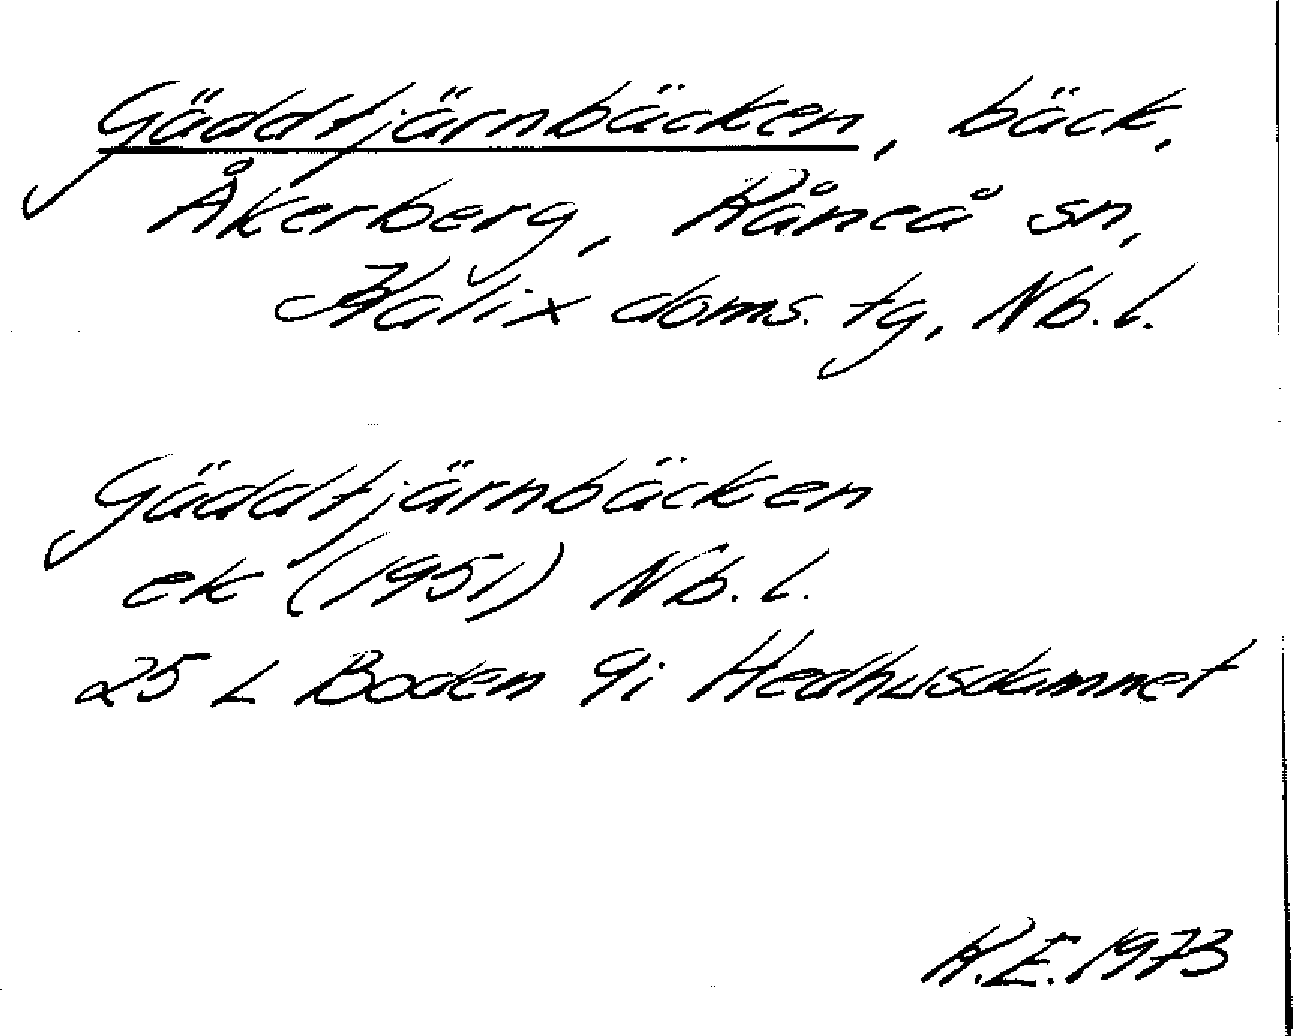 Gäddtjärnbäcken, bäck,
Åkerberg, Råneå sn,
Kalix doms. tg, Nb. l.
Gäddtjärnbäcken
ek (1951) Nb. l.
25 L Boden 9i Hedhusdammet
R.E. 1973